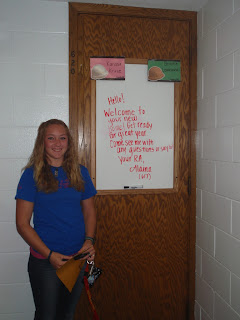 Hello!
Welcome to
your new
Get ready
for great year
Come see me with
any questions or
your RA,